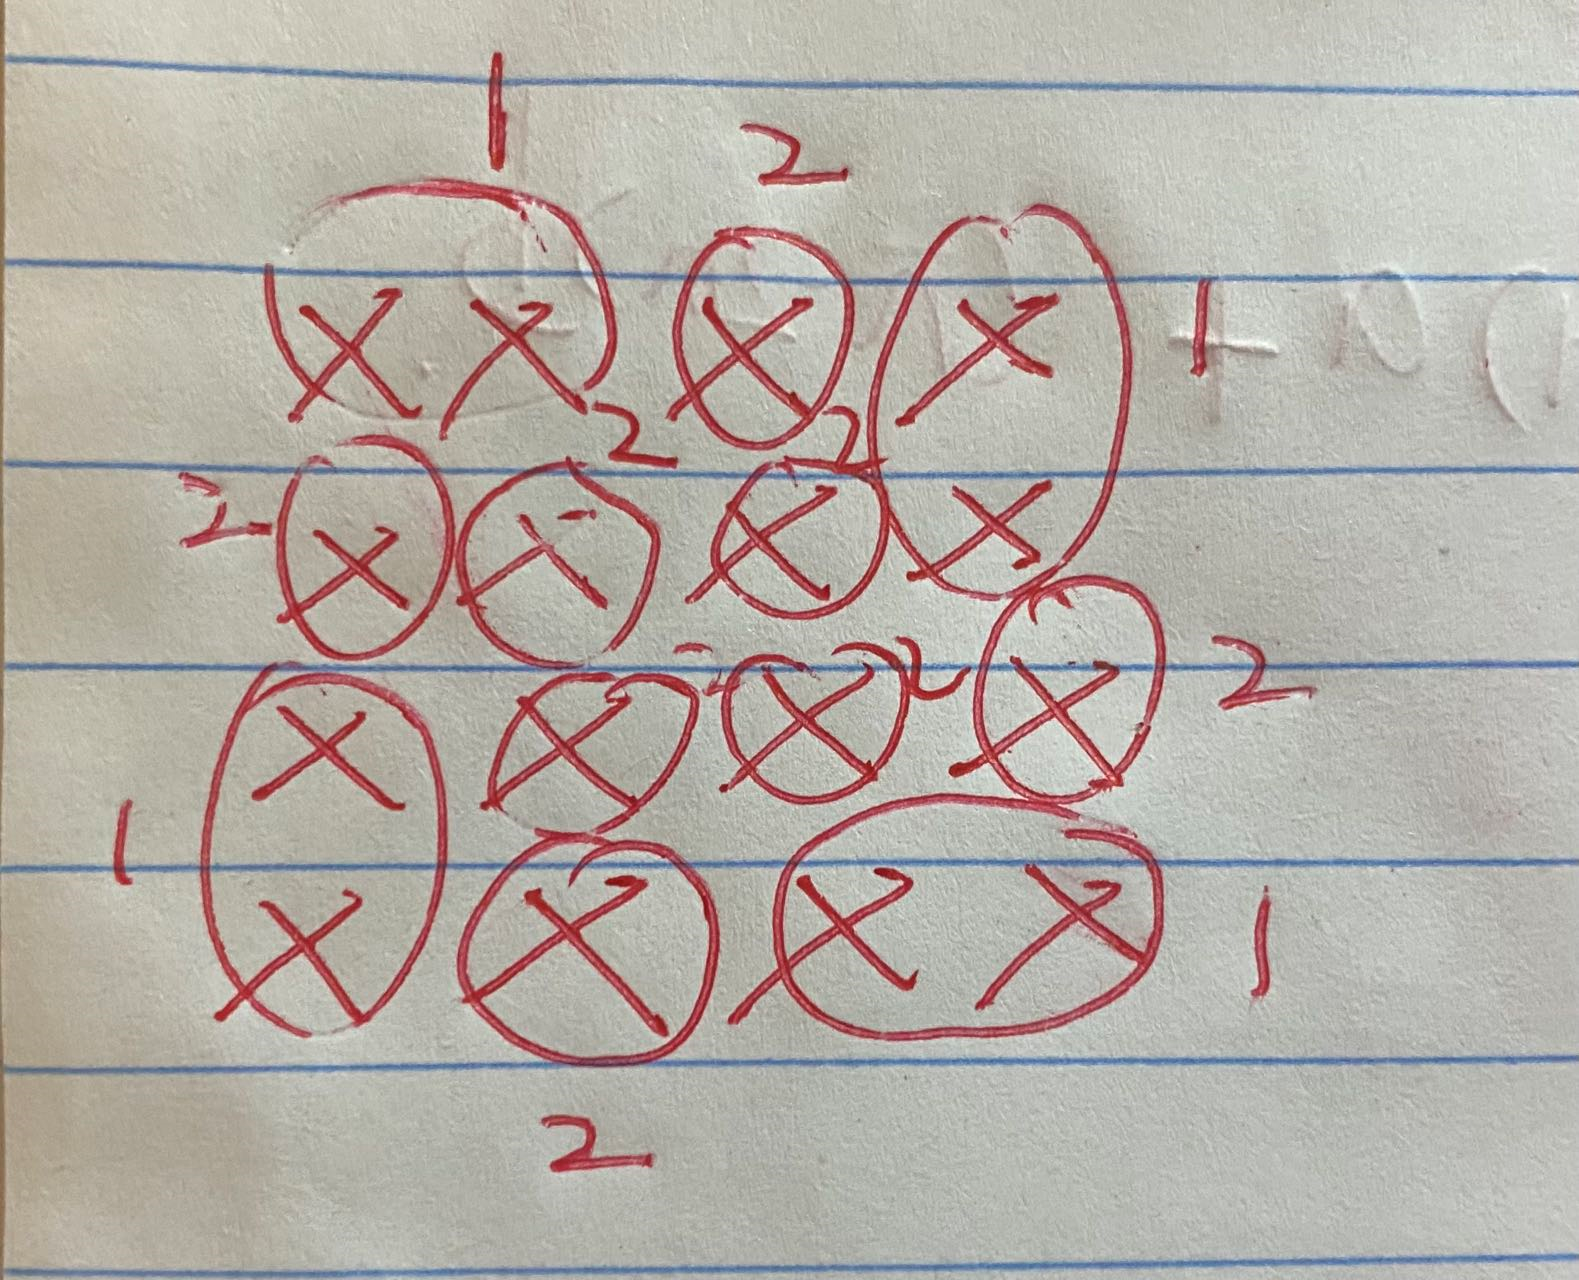 1
2
X X X X 1
2 2
2 X X X X
2 2
X X X X
1
X X X X 1
2